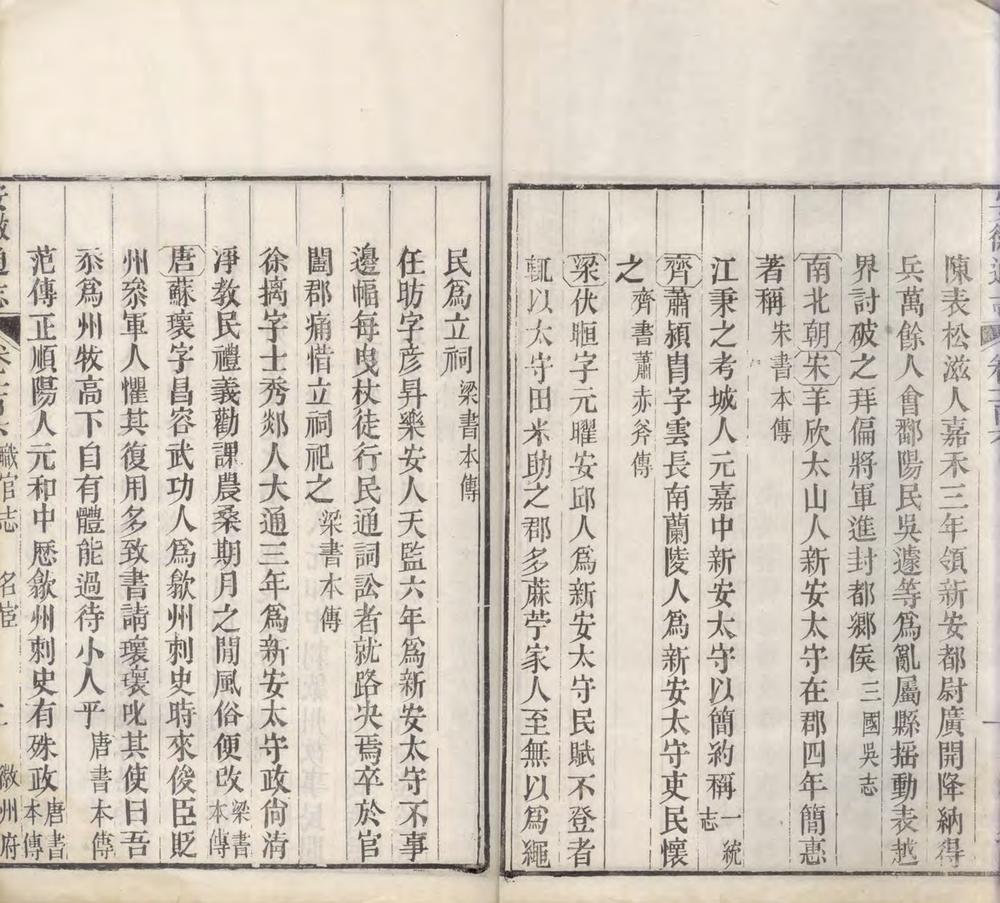 陳表松滋人嘉禾三年領新安都尉廣開降納得
兵萬餘人會鄱陽民吳遽等爲亂屬縣揺動表越
界討破之拜偏將軍進封都鄉矦三國吳志
南北朝宋羊欣太山人新安太守在郡四年簡惠
著稱宋書本傳
江秉之考城人元嘉中新安太守以簡約稱一統志
齊蕭潁胄字雲長南蘭陵人爲新安太守吏民懷
之齊書蕭赤斧傳
梁伏暅字元曜安邱人爲新安太守民賦不登者
輒以太守田米助之郡多蔴苧家人至無以爲繩
民爲立祠梁書本傳
任昉字彥昇樂安人天監六年爲新安太守不事
邊幅每曳杖徒行民通詞訟者就路決焉卒於官
闔郡痛惜立祠祀之梁書本傳
徐摛字士秀郯人大通三年爲新安太守政尙淸
凈教民禮義勸課農桑期月之閒風俗便改梁書本傳
唐蘇瓌字昌容武功人爲歙州刺史時來俊臣貶
州叅軍人懼其復用多致書請瓌瓌叱其使曰吾
忝爲州牧高下自有體能過待小人乎唐書本傳
范傳正順陽人元和中歷歙州刺史有殊政唐書本傳
安徽通志 職官志 名宦 徽州府